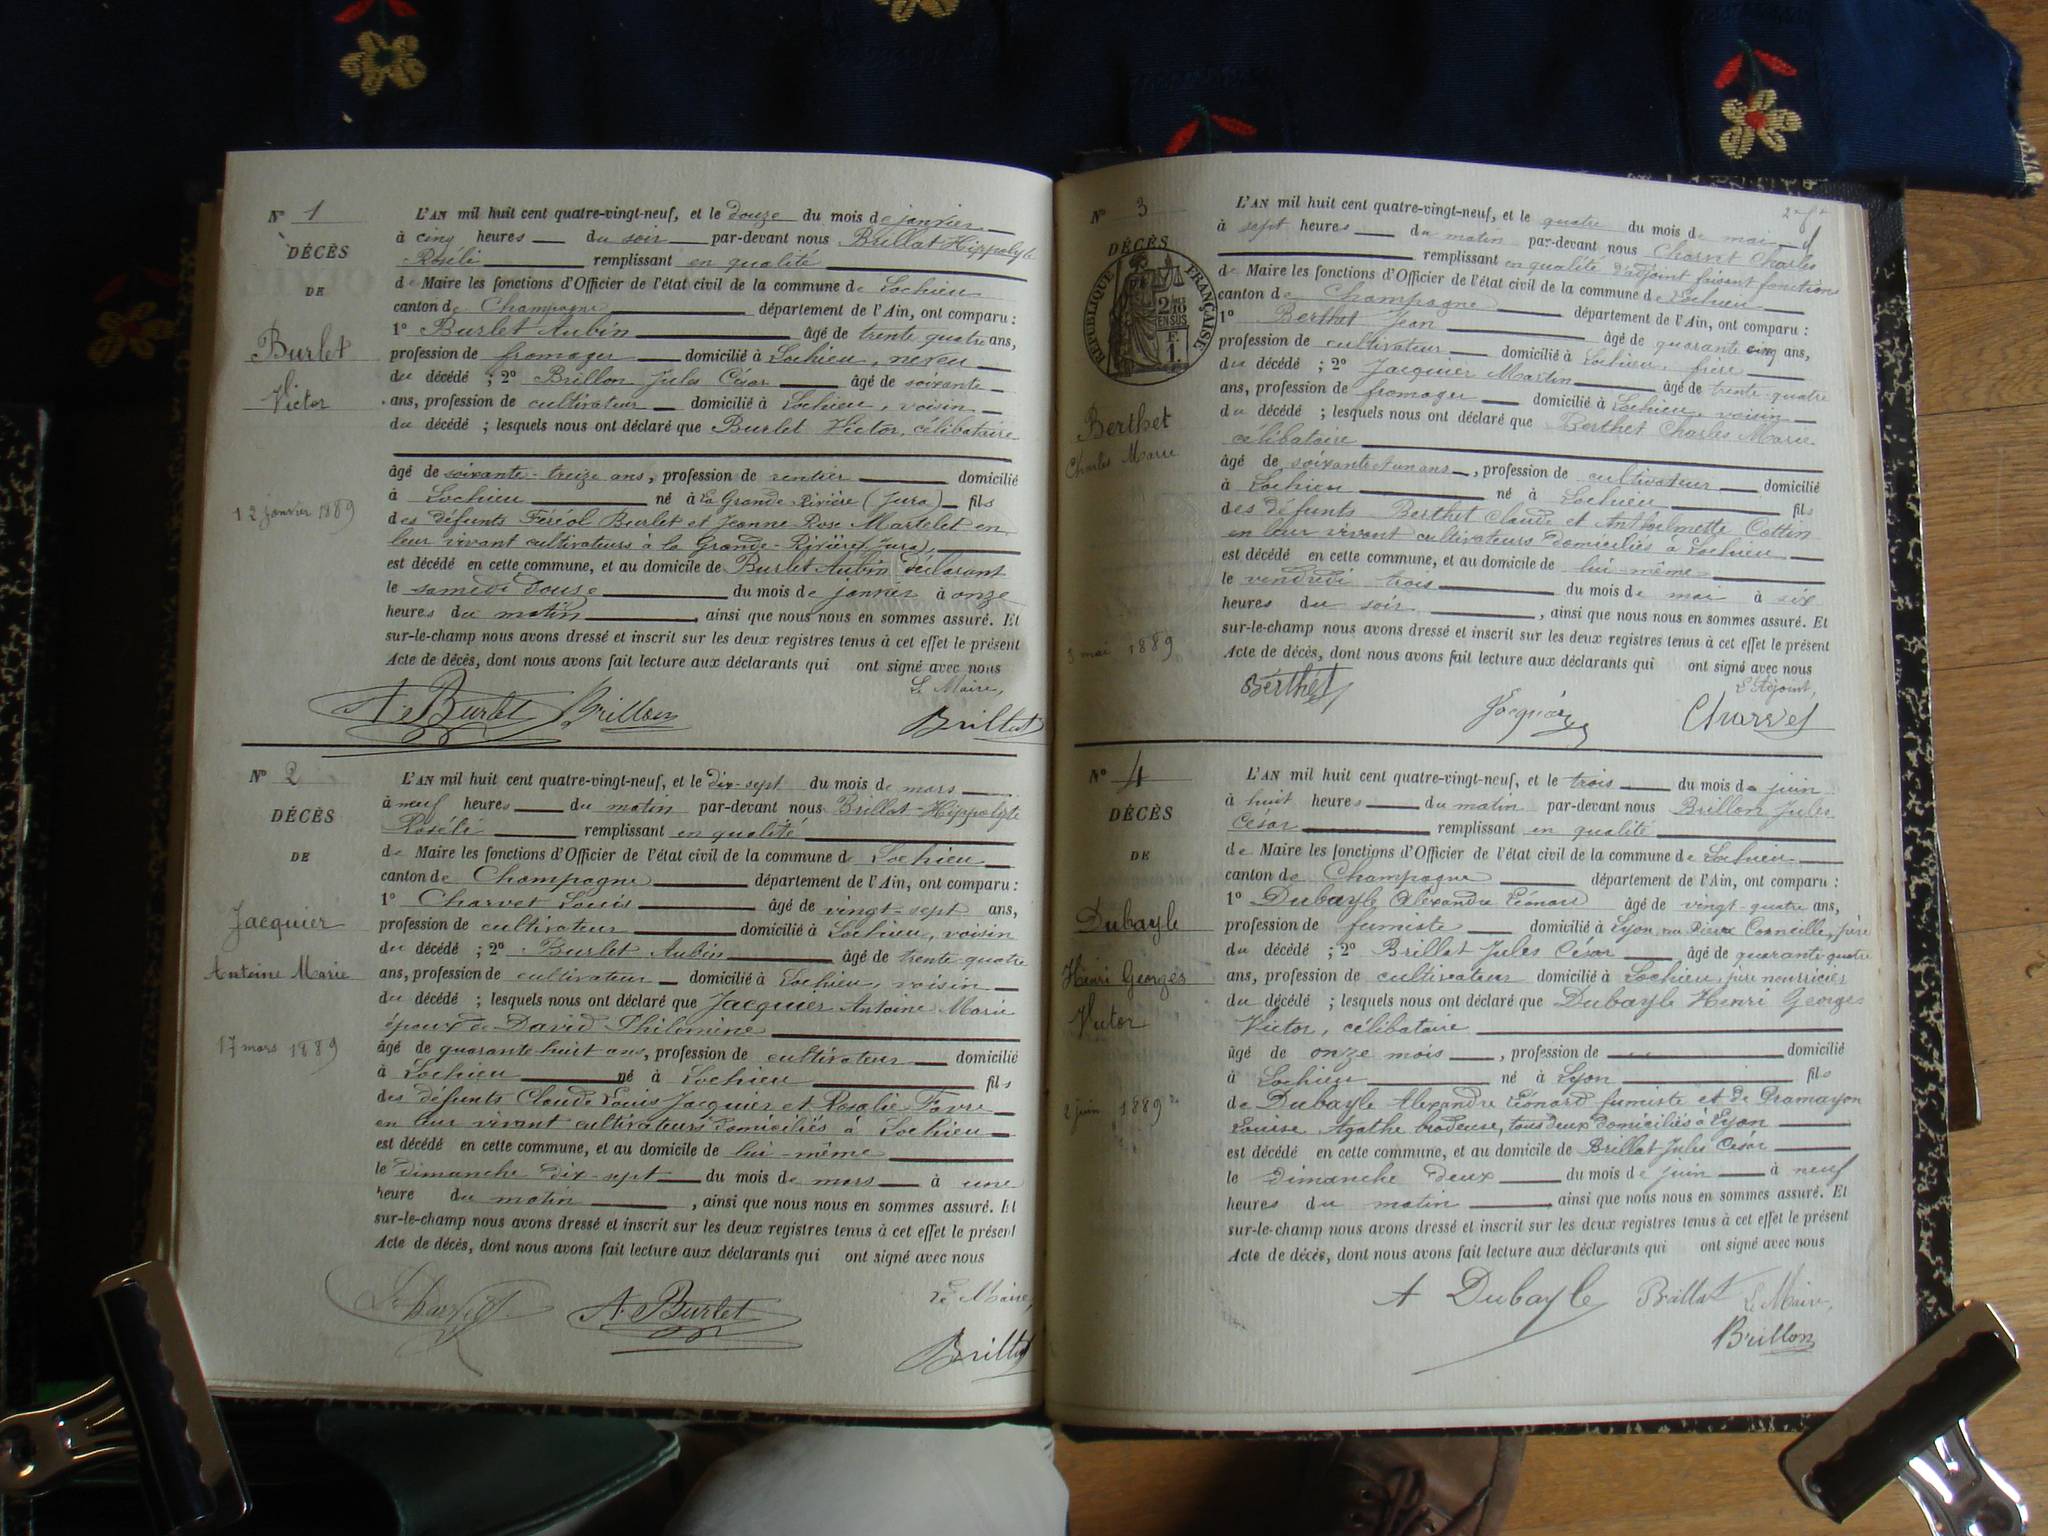 N° 1
DÉCÈS
DE
Burlet
Victor
12 janvier 1889
L'AN mil huit cent quatre-vingt-neuf, et le douze du mois de janvier
à cinq heures du soir par-devant nous Brillat Hippolyte
Roséli remplissant en qualité
de Maire les fonctions d'Officier de l'état civil de la commune de Lochieu
canton de Champagne département de l'Ain, ont comparu :
1° Burlet Aubin âgé de trente quatre ans,
profession de fromager domicilié à Lochieu, neveu
du décédé ; 2° Brillon Jules César âgé de soixante
ans, profession de cultivateur domicilié à Lochieu, voisin
du décédé ; lesquels nous ont déclaré que Burlet Victor, célibataire
âgé de soixante-treize ans, profession de rentier domicilié
à Lochieu né à la Grande Rivière (Jura) fils
des défunts Féréol Burlet et Jeanne Rose Martelet en
leur vivant cultivateurs à la Grande-Rivière (Jura)
est décédé en cette commune, et au domicile de Burlet Aubin déclarant
le samedi douze du mois de janvier à onze
heures du matin, ainsi que nous nous en sommes assuré. Et
sur-le-champ nous avons dressé et inscrit sur les deux registres tenus à cet effet le présent
Acte de décès, dont nous avons fait lecture aux déclarants qui ont signé avec nous
Le Maire,
A. Burlet Brillon Brillat
N° 2
DÉCÈS
DE
Jacquier
Antoine Marie
17 mars 1889
L'AN mil huit cent quatre-vingt-neuf, et le dix-sept du mois de mars
à neuf heures du matin par-devant nous Brillat-Hippolyte
Roséli remplissant en qualité
de Maire les fonctions d'Officier de l'état civil de la commune de Lochieu
canton de Champagne département de l'Ain, ont comparu :
1° Charvet Louis âgé de vingt-sept ans,
profession de cultivateur domicilié à Lochieu, voisin
du décédé ; 2° Burlet Aubin âgé de trente-quatre
ans, profession de cultivateur domicilié à Lochieu, voisin
du décédé ; lesquels nous ont déclaré que Jacquier Antoine Marie
époux de David Philomène
âgé de quarante huit ans, profession de cultivateur domicilié
à Lochieu né à Lochieu fils
des défunts Claude Louis Jacquier et Rosalie Favre
en leur vivant cultivateurs domiciliés à Lochieu
est décédé en cette commune, et au domicile de lui-même
le dimanche dix-sept du mois de mars à une
heure du matin, ainsi que nous nous en sommes assuré. Et
sur-le-champ nous avons dressé et inscrit sur les deux registres tenus à cet effet le présent
Acte de décès, dont nous avons fait lecture aux déclarants qui ont signé avec nous
Le Maire,
L. Charvet A. Burlet Brillat
N° 3
DÉCÈS
RÉPUBLIQUE FRANÇAISE
Berthet
Charles Marie
3 mai 1889
L'AN mil huit cent quatre-vingt-neuf, et le quatre du mois de mai
à sept heures du matin par-devant nous Charvet Charles
remplissant en qualité d'adjoint faisant fonctions
de Maire les fonctions d'Officier de l'état civil de la commune de Lochieu
canton de Champagne département de l'Ain, ont comparu :
1° Berthet Jean âgé de quarante cinq ans,
profession de cultivateur domicilié à Lochieu, frère
du décédé ; 2° Jacquier Martin âgé de trente-quatre
ans, profession de fromager domicilié à Lochieu, voisin
du décédé ; lesquels nous ont déclaré que Berthet Charles Marie
célibataire
âgé de soixante et un ans, profession de cultivateur domicilié
à Lochieu né à Lochieu fils
des défunts Berthet Claude et Anthelmette Cottin
en leur vivant cultivateurs domiciliés à Lochieu
est décédé en cette commune, et au domicile de lui-même
le vendredi trois du mois de mai à six
heures du soir, ainsi que nous nous en sommes assuré. Et
sur-le-champ nous avons dressé et inscrit sur les deux registres tenus à cet effet le présent
Acte de décès, dont nous avons fait lecture aux déclarants qui ont signé avec nous
L'Adjoint,
Berthet Jacquier Charvet
N° 4
DÉCÈS
DE
Dubayle
Henri Georges
Victor
2 juin 1889
L'AN mil huit cent quatre-vingt-neuf, et le trois du mois de juin
à huit heures du matin par-devant nous Brillon Jules
César remplissant en qualité
de Maire les fonctions d'Officier de l'état civil de la commune de Lochieu
canton de Champagne département de l'Ain, ont comparu :
1° Dubayle Alexandre Léonard âgé de vingt-quatre ans,
profession de fumiste domicilié à Lyon, rue Pierre Corneille, père
du décédé ; 2° Brillat Jules César âgé de quarante-quatre
ans, profession de cultivateur domicilié à Lochieu, père nourricier
du décédé ; lesquels nous ont déclaré que Dubayle Henri Georges
Victor, célibataire
âgé de onze mois, profession de domicilié
à Lochieu né à Lyon fils
de Dubayle Alexandre Léonard fumiste et de Gramayon
Louise Agathe brodeuse, tous deux domiciliés à Lyon
est décédé en cette commune, et au domicile de Brillat Jules César
le dimanche deux du mois de juin à neuf
heures du matin, ainsi que nous nous en sommes assuré. Et
sur-le-champ nous avons dressé et inscrit sur les deux registres tenus à cet effet le présent
Acte de décès, dont nous avons fait lecture aux déclarants qui ont signé avec nous
A Dubayle Brillat Le Maire,
Brillon